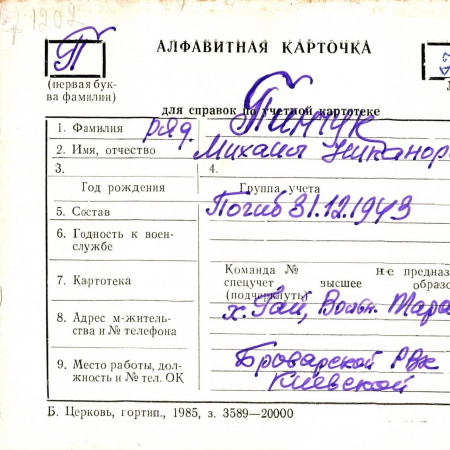 1202
П
АЛФАВИТНАЯ КАРТОЧКА
(первая бук-
ва фамилии)
для справок по учетной картотеке
1. Фамилия ряд. Пинчук
2. Имя, отчество Михаил Никанор
3.
4.
Год рождения Группа учета
5. Состав Погиб 31.12.1943
6. Годность к воен-
службе
Команда № не предназ
7. Картотека спецучет высшее образо
(подчеркнуть)
8. Адрес м-житель- х. Гай,
ства и № телефона
9. Место работы, дол- Броварской РВК
жность и № тел. ОК Киевской
Б. Церковь, гортип., 1985, з. 3589—20000